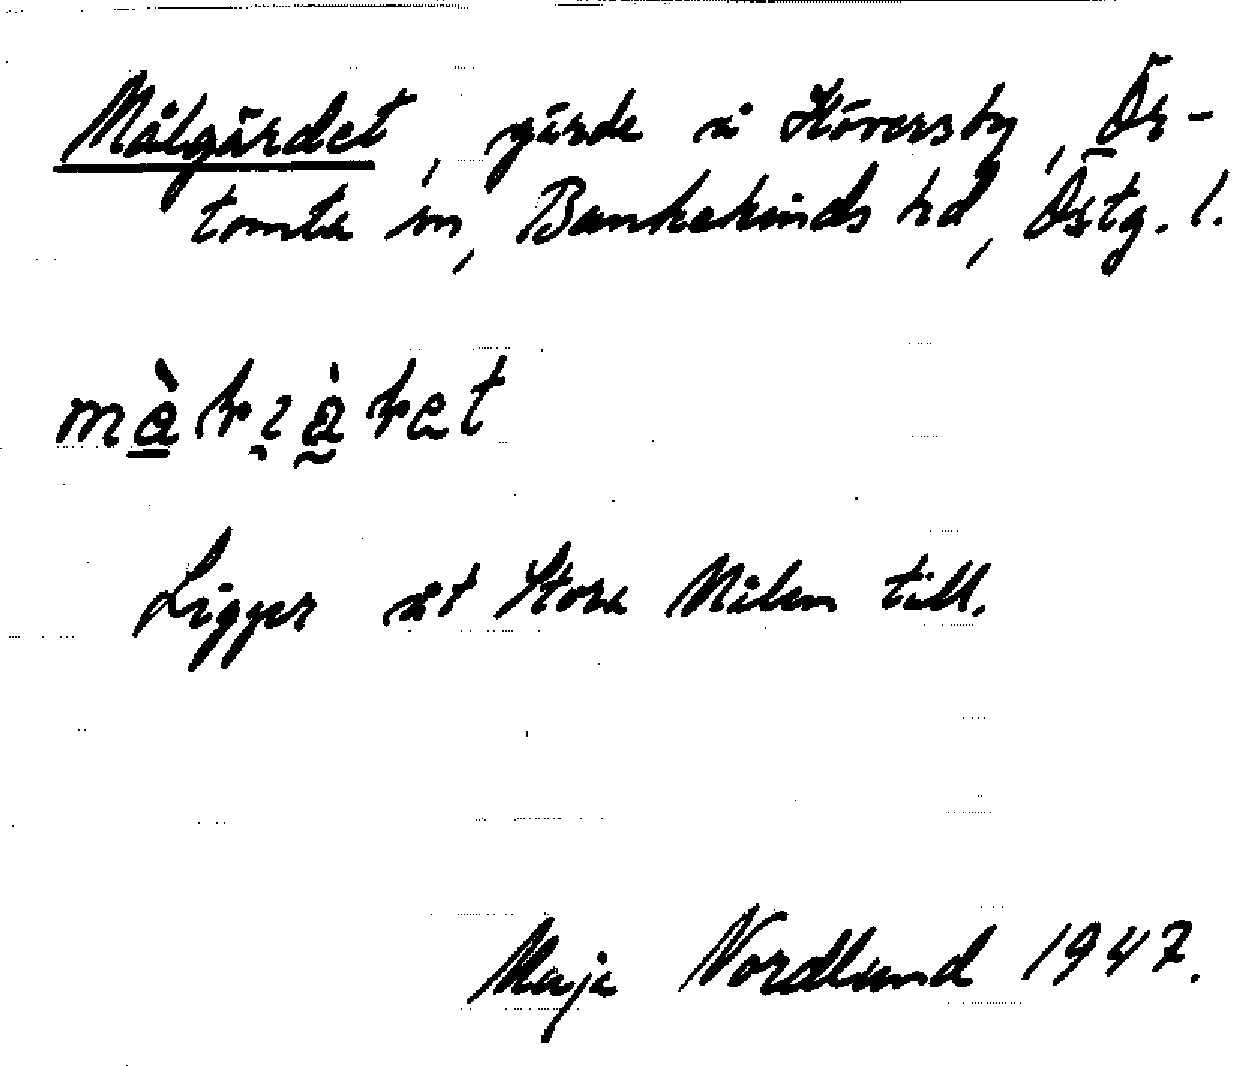 Målgärdet, gärde å Höversby, Ör-
tomta sn, Bankekinds hd, Östg. l.
Ligger åt Stora Målen till.
Maja Nordlund 1947.